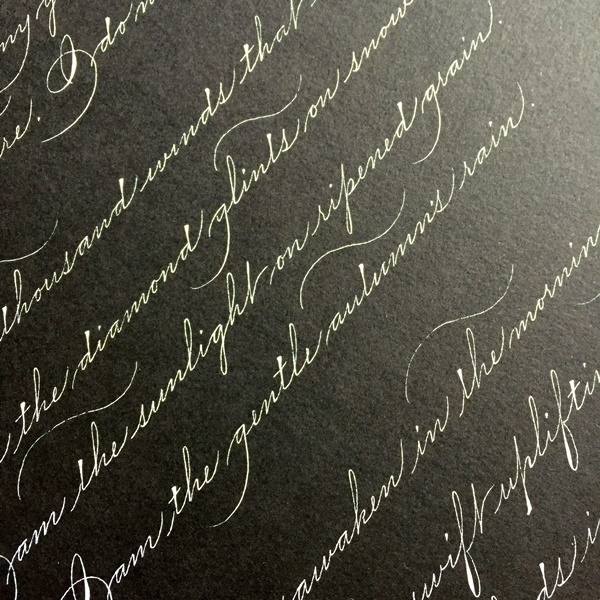 my
re. I do
thousand winds that
the diamond glints on snow
I am the sunlight on ripened grain.
I am the gentle autumn's rain.
awaken in the mornin
swift uplifti
ds i